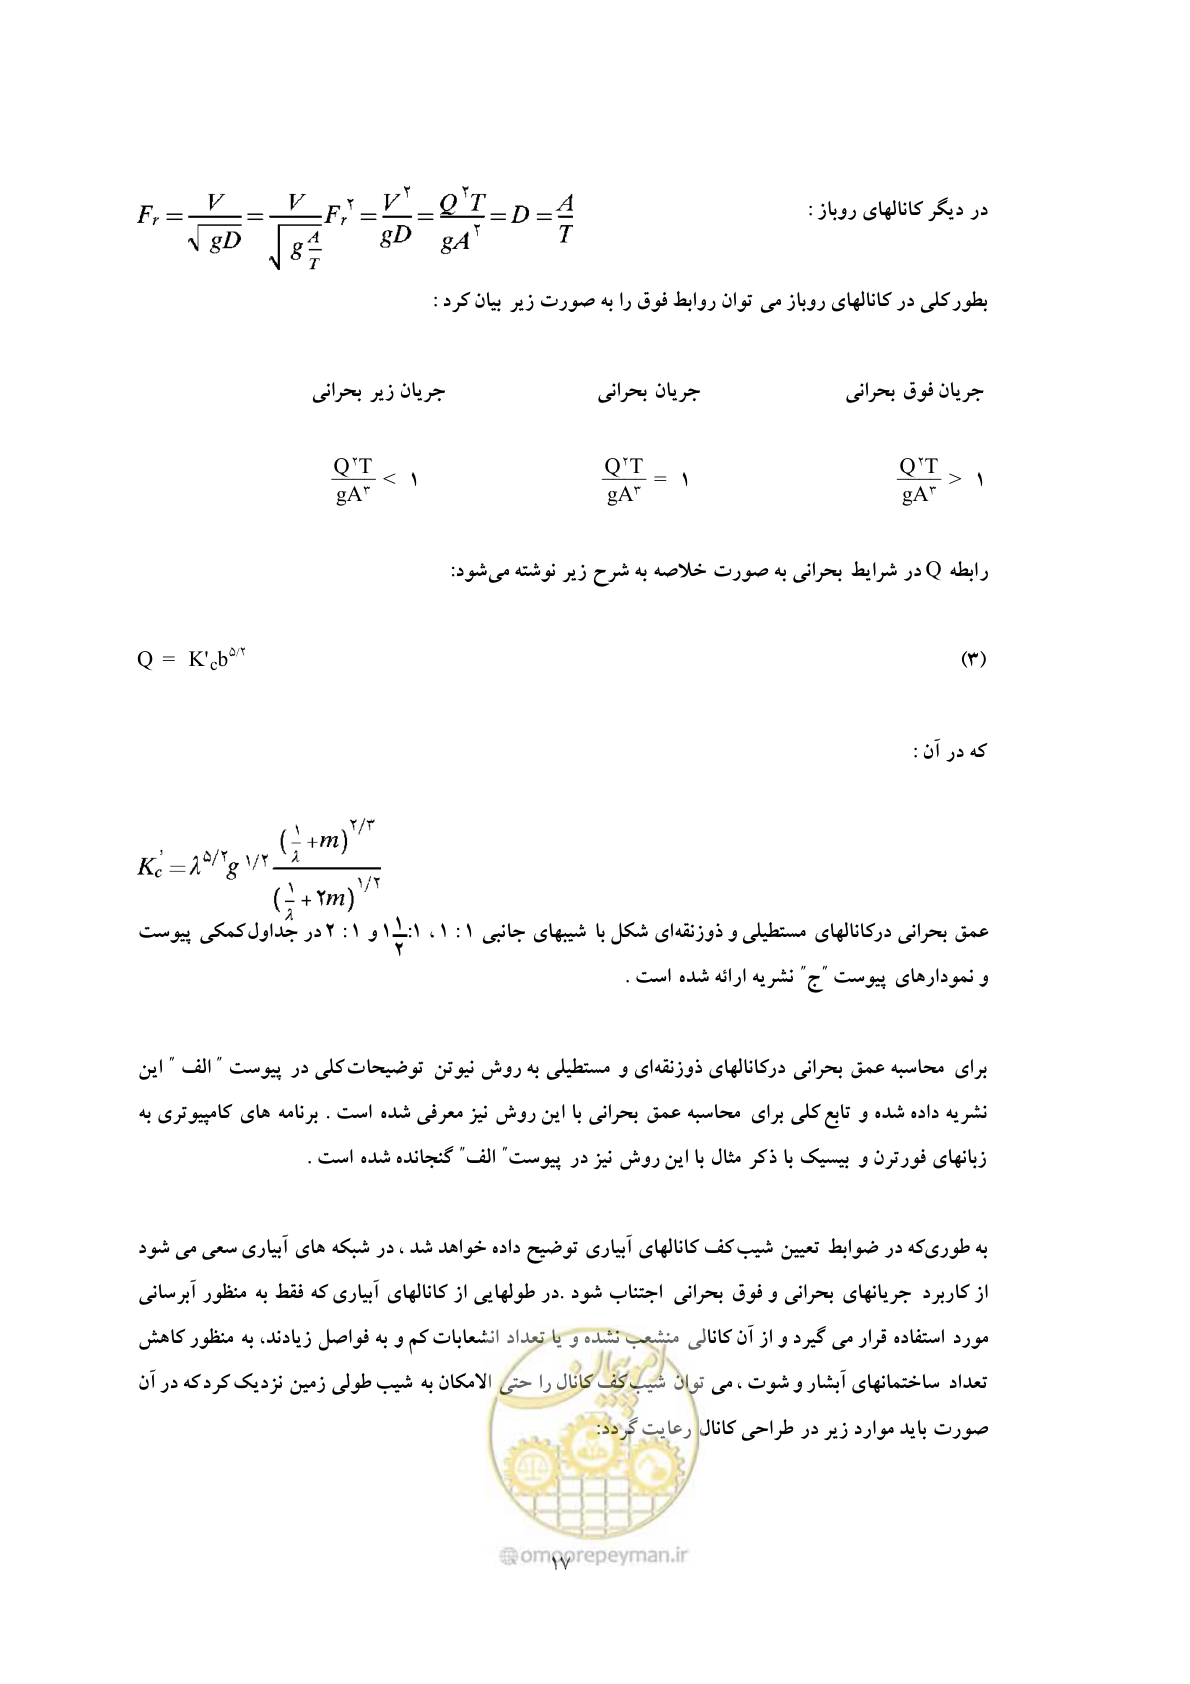 در دیگر کانالهای روباز : F_r = V/√(gD) = V/√(g A/T) F_r^۲ = V^۲/gD = Q^۲T/gA^۲ = D = A/T
بطورکلی در کانالهای روباز می توان روابط فوق را به صورت زیر بیان کرد :
جریان فوق بحرانی جریان بحرانی جریان زیر بحرانی
Q^۲T/gA^۳ > ۱ Q^۲T/gA^۳ = ۱ Q^۲T/gA^۳ < ۱
رابطه Q در شرایط بحرانی به صورت خلاصه به شرح زیر نوشته می‌شود:
(۳) Q = K'_c b^۵/۲
که در آن :
K_c' = λ^۵/۲ g^۱/۲ (۱/λ + m)^۲/۳ / (۱/λ + ۲m)^۱/۲
عمق بحرانی درکانالهای مستطیلی و ذوزنقه‌ای شکل با شیبهای جانبی ۱ : ۱ ، ۱: ۱ ۱/۲ و ۱ : ۲ در جداول‌کمکی پیوست
و نمودارهای پیوست "ج" نشریه ارائه شده است .
برای محاسبه عمق بحرانی درکانالهای ذوزنقه‌ای و مستطیلی به روش نیوتن توضیحات‌کلی در پیوست " الف " این
نشریه داده شده و تابع کلی برای محاسبه عمق بحرانی با این روش نیز معرفی شده است . برنامه های کامپیوتری به
زبانهای فورترن و بیسیک با ذکر مثال با این روش نیز در پیوست" الف" گنجانده شده است .
به طوری‌که در ضوابط تعیین شیب‌کف کانالهای آبیاری توضیح داده خواهد شد ، در شبکه های آبیاری سعی می شود
از کاربرد جریانهای بحرانی و فوق بحرانی اجتناب شود .در طولهایی از کانالهای آبیاری که فقط به منظور آبرسانی
مورد استفاده قرار می گیرد و از آن کانالی منشعب نشده و یا تعداد انشعابات کم و به فواصل زیادند، به منظور کاهش
تعداد ساختمانهای آبشار و شوت ، می توان شیب‌کف کانال را حتی الامکان به شیب طولی زمین نزدیک کرد که در آن
صورت باید موارد زیر در طراحی کانال رعایت گردد:
امور پیمان
@omoorepeyman.ir
۱۷